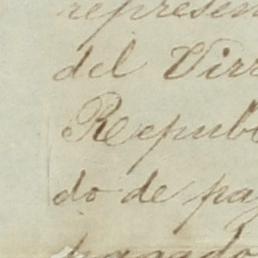 represen
del Virr
Republ
do de pa
pagado